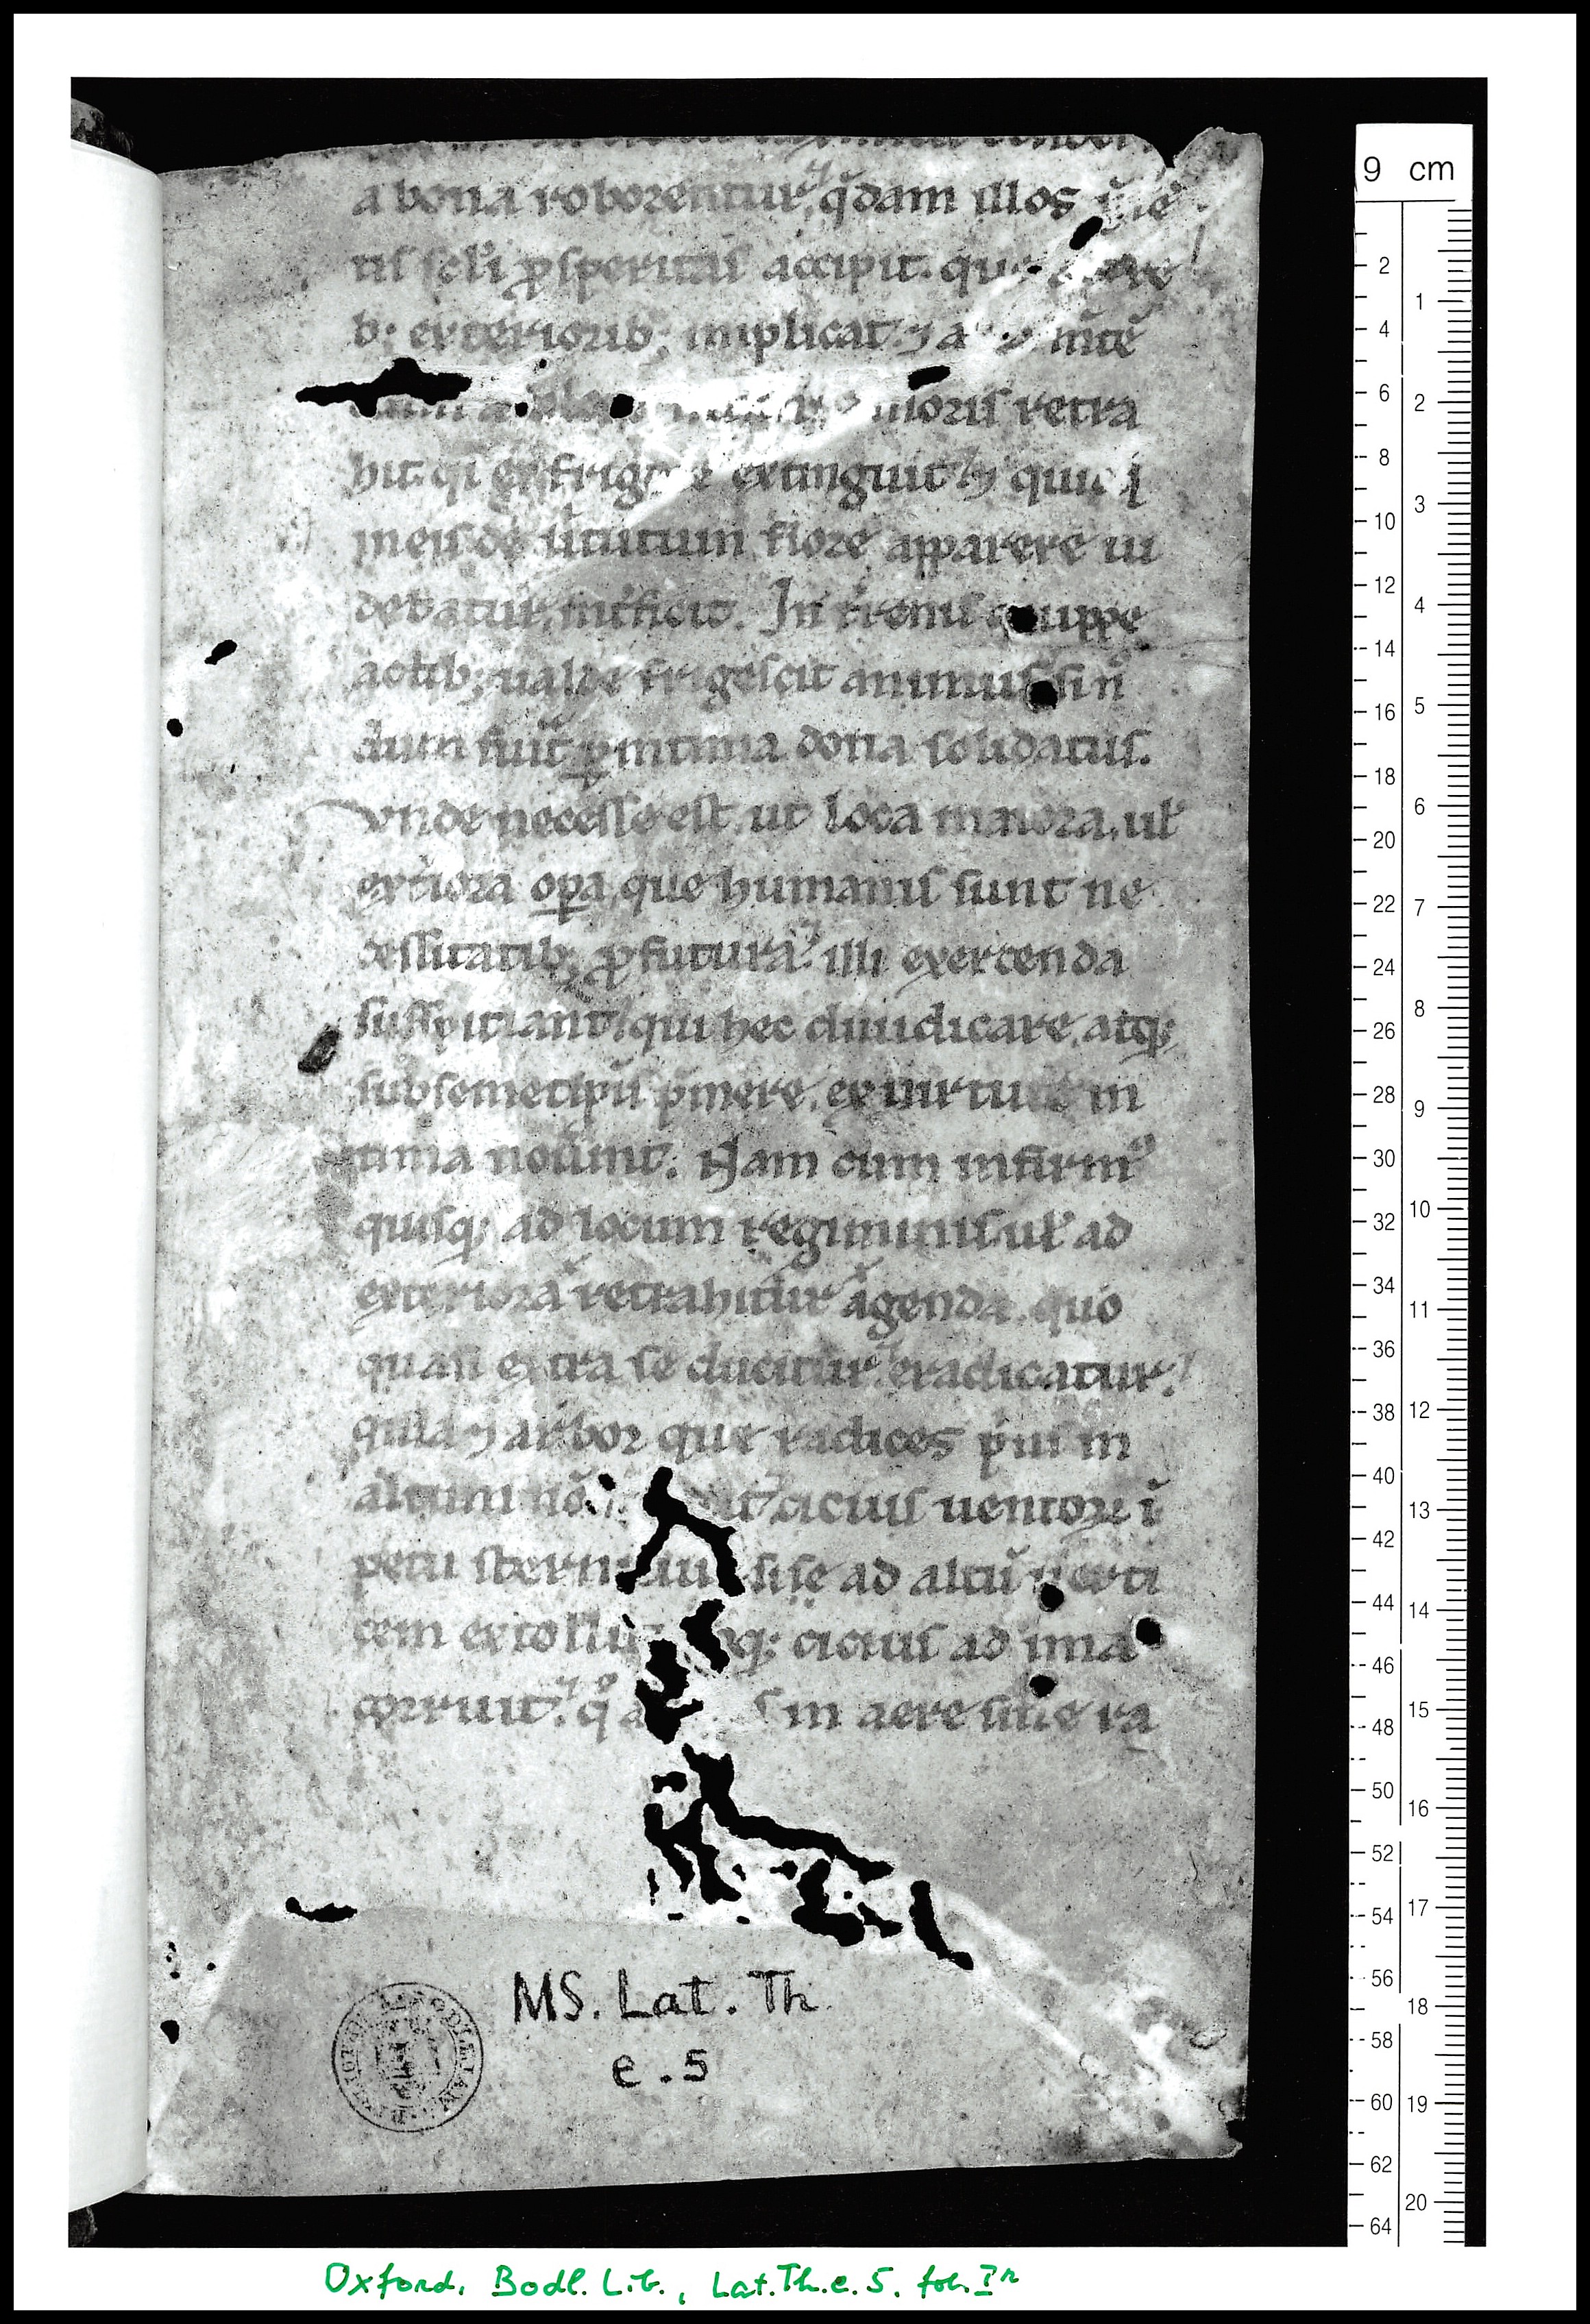 a bona roborentur, q̄dam illos
tis scł'i ꝓsperitas accipit.
b; exteriorib; implicat. ⁊ a
moris retra
hit. qi ex frigore extinguit ⁊
in eis de u̓tutum flore apparere ui
debatur, int̓ficit. In t̓renis quippe
actib; ualde frigescit animus, si nō
dum fuit̄ ꝑ intima dona solidatus.
Vnde necesse est, ut loca maiora, ul̓
ext̓iora oꝑa, que humanis sunt ne
cessitatib; ꝓfutura. illi exercenda
suspitiant. qui hec diiudicare, atq;
subsemetipsū p̓mere, ex uirtute in
tima nouūnt. Nam cum infirmꝰ
quisq; ad locum regiminis ul̓ ad
exteriora retrahitur agenda. quo
quasi extra se ducitur. eradicatur.
quia ⁊ arbor que radices p̓us in
altum nō citius uentoꝝ ī
petu sternitur si se ad altū uerti
cem extollit q; citius ad ima
corruit. qͦ in aere sine ra
MS. Lat. Th.
e. 5
9 cm
2 4 6 8 10 12 14 16 18 20 22 24 26 28 30 32 34 36 38 40 42 44 46 48 50 52 54 56 58 60 62 64
1 2 3 4 5 6 7 8 9 10 11 12 13 14 15 16 17 18 19 20
Oxford, Bodl. Lib., Lat. Th. e. 5. fol. Iʳ